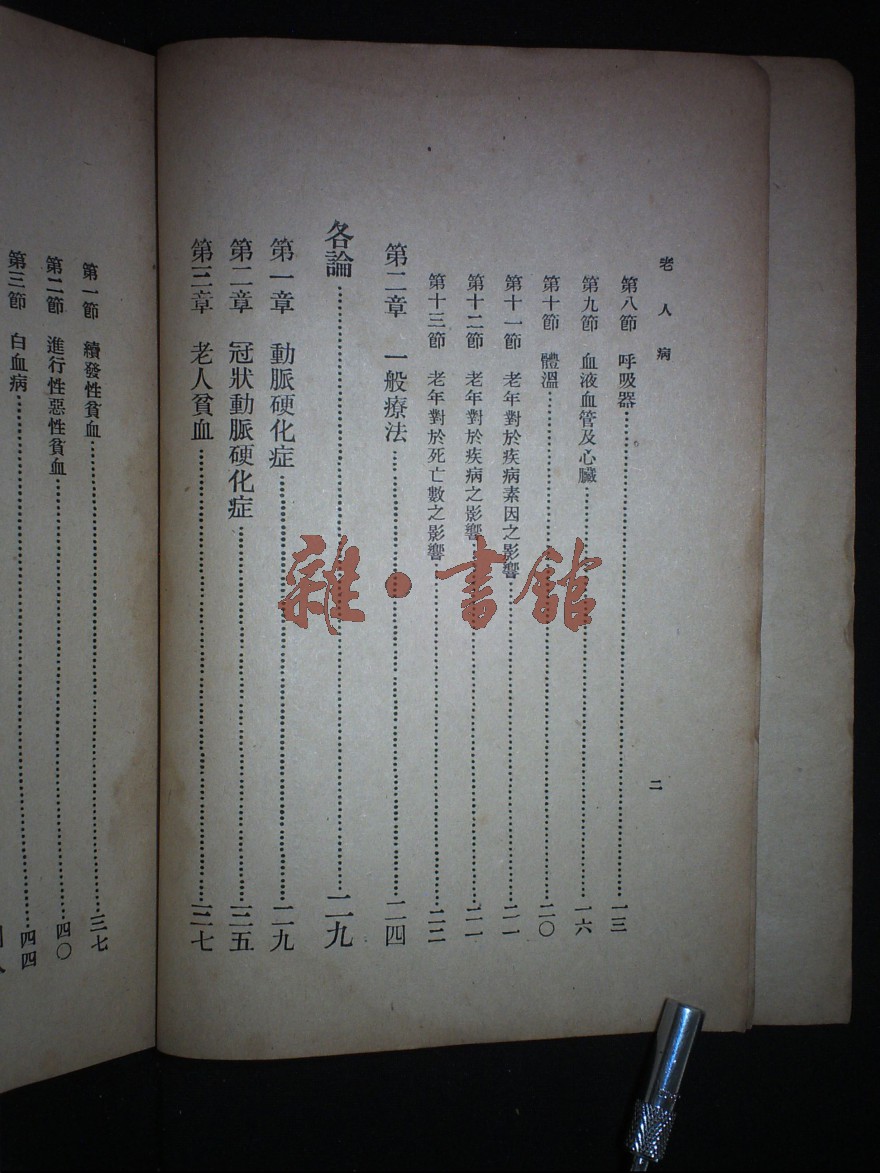 老人病
二
第八節 呼吸器……一三
第九節 血液血管及心臟……一六
第十節 體溫……二〇
第十一節 老年對於疾病素因之影響……二一
第十二節 老年對於疾病之影響……二一
第十三節 老年對於死亡數之影響……二二
第二章 一般療法……二四
各論……二九
第一章 動脈硬化症……二九
第二章 冠狀動脈硬化症……三五
第三章 老人貧血……三七
第一節 續發性貧血……三七
第二節 進行性惡性貧血……四〇
第三節 白血病……四四
雜·書館